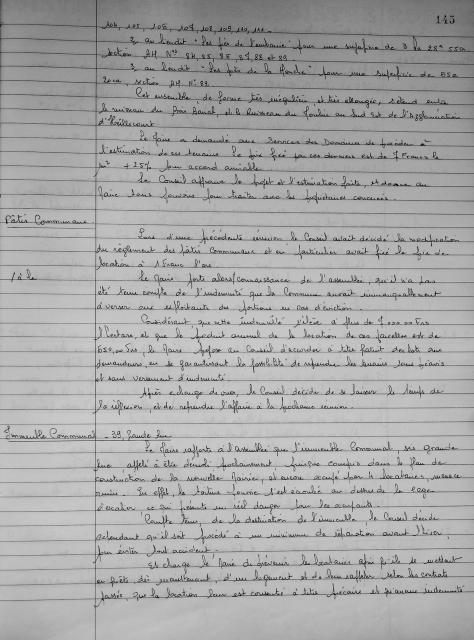 145
104, 105, 106, 107, 108, 109, 110, 111 -
2. au lieudit "les prés de l'
section AH Nos 84, 85, 86, 87, 88 et 89
3. au lieudit "les prés de la" pour une superficie de
section AH N° 83
Cet ensemble, de forme très irrégulière, et très allongée, s'étend entre
le ruisseau du et le Ruisseau du Moulin au Sud est de l'Agglomération
d'Heillecourt
Le Maire a demandé aux Services des Domaines de procéder à
l'estimation de ces terrains. Le prix fixé par ces derniers est de 7 Francs le
m² + 25% pour accord amiable
Le Conseil approuve le projet et l'estimation faite, et donne au
Maire tous pouvoirs pour traiter avec les propriétaires concernés.
Pâtis Communaux
Lors d'une précédente réunion le Conseil avait décidé la modification
du règlement des pâtis Communaux et en particulier avait fixé le prix de
location à 1 Franc l'are
Le Maire porte alors connaissance de l'assemblée, qu'il n'a pas
été tenu compte de l'indemnité que la Commune aurait immanquablement
à verser aux exploitants des portions en cas d'éviction.
Considérant, que cette indemnité s'élève à plus de
l'hectare, et que le produit annuel de la location de ces parcelles est de
le Maire propose au Conseil d'accorder à titre gratuit des lots aux
demandeurs, en se garantissant la possibilité de reprendre les terrains sans préavis
et sans versement d'indemnité.
Après échange de vues, le Conseil décide de se laisser le temps de
la réflexion, et de reprendre l'affaire à la prochaine réunion.
Immeuble Communal - 39, Grande Rue
Le Maire rapporte à l'assemblée que l'immeuble Communal, sis Grande
Rue, appelé à être démoli prochainement, puisque compris dans le plan de
construction de la nouvelle Mairie, et encore occupé par 4 locataires, menace
ruine. En effet, la toiture pourrie s'est écroulée au dessus de la cage
d'escalier, ce qui présente un réel danger pour les occupants.
Compte tenu, de la destination de l'immeuble, le Conseil décide
cependant qu'il soit procédé à un minimum de réparation avant l'hiver,
pour éviter tout accident.
Et charge le Maire de prévenir les locataires afin qu'ils se mettent
en quête dès maintenant, d'un logement et de leur rappeler selon les contrats
passés, que la location leur est consentie à titre précaire et qu'aucune indemnité